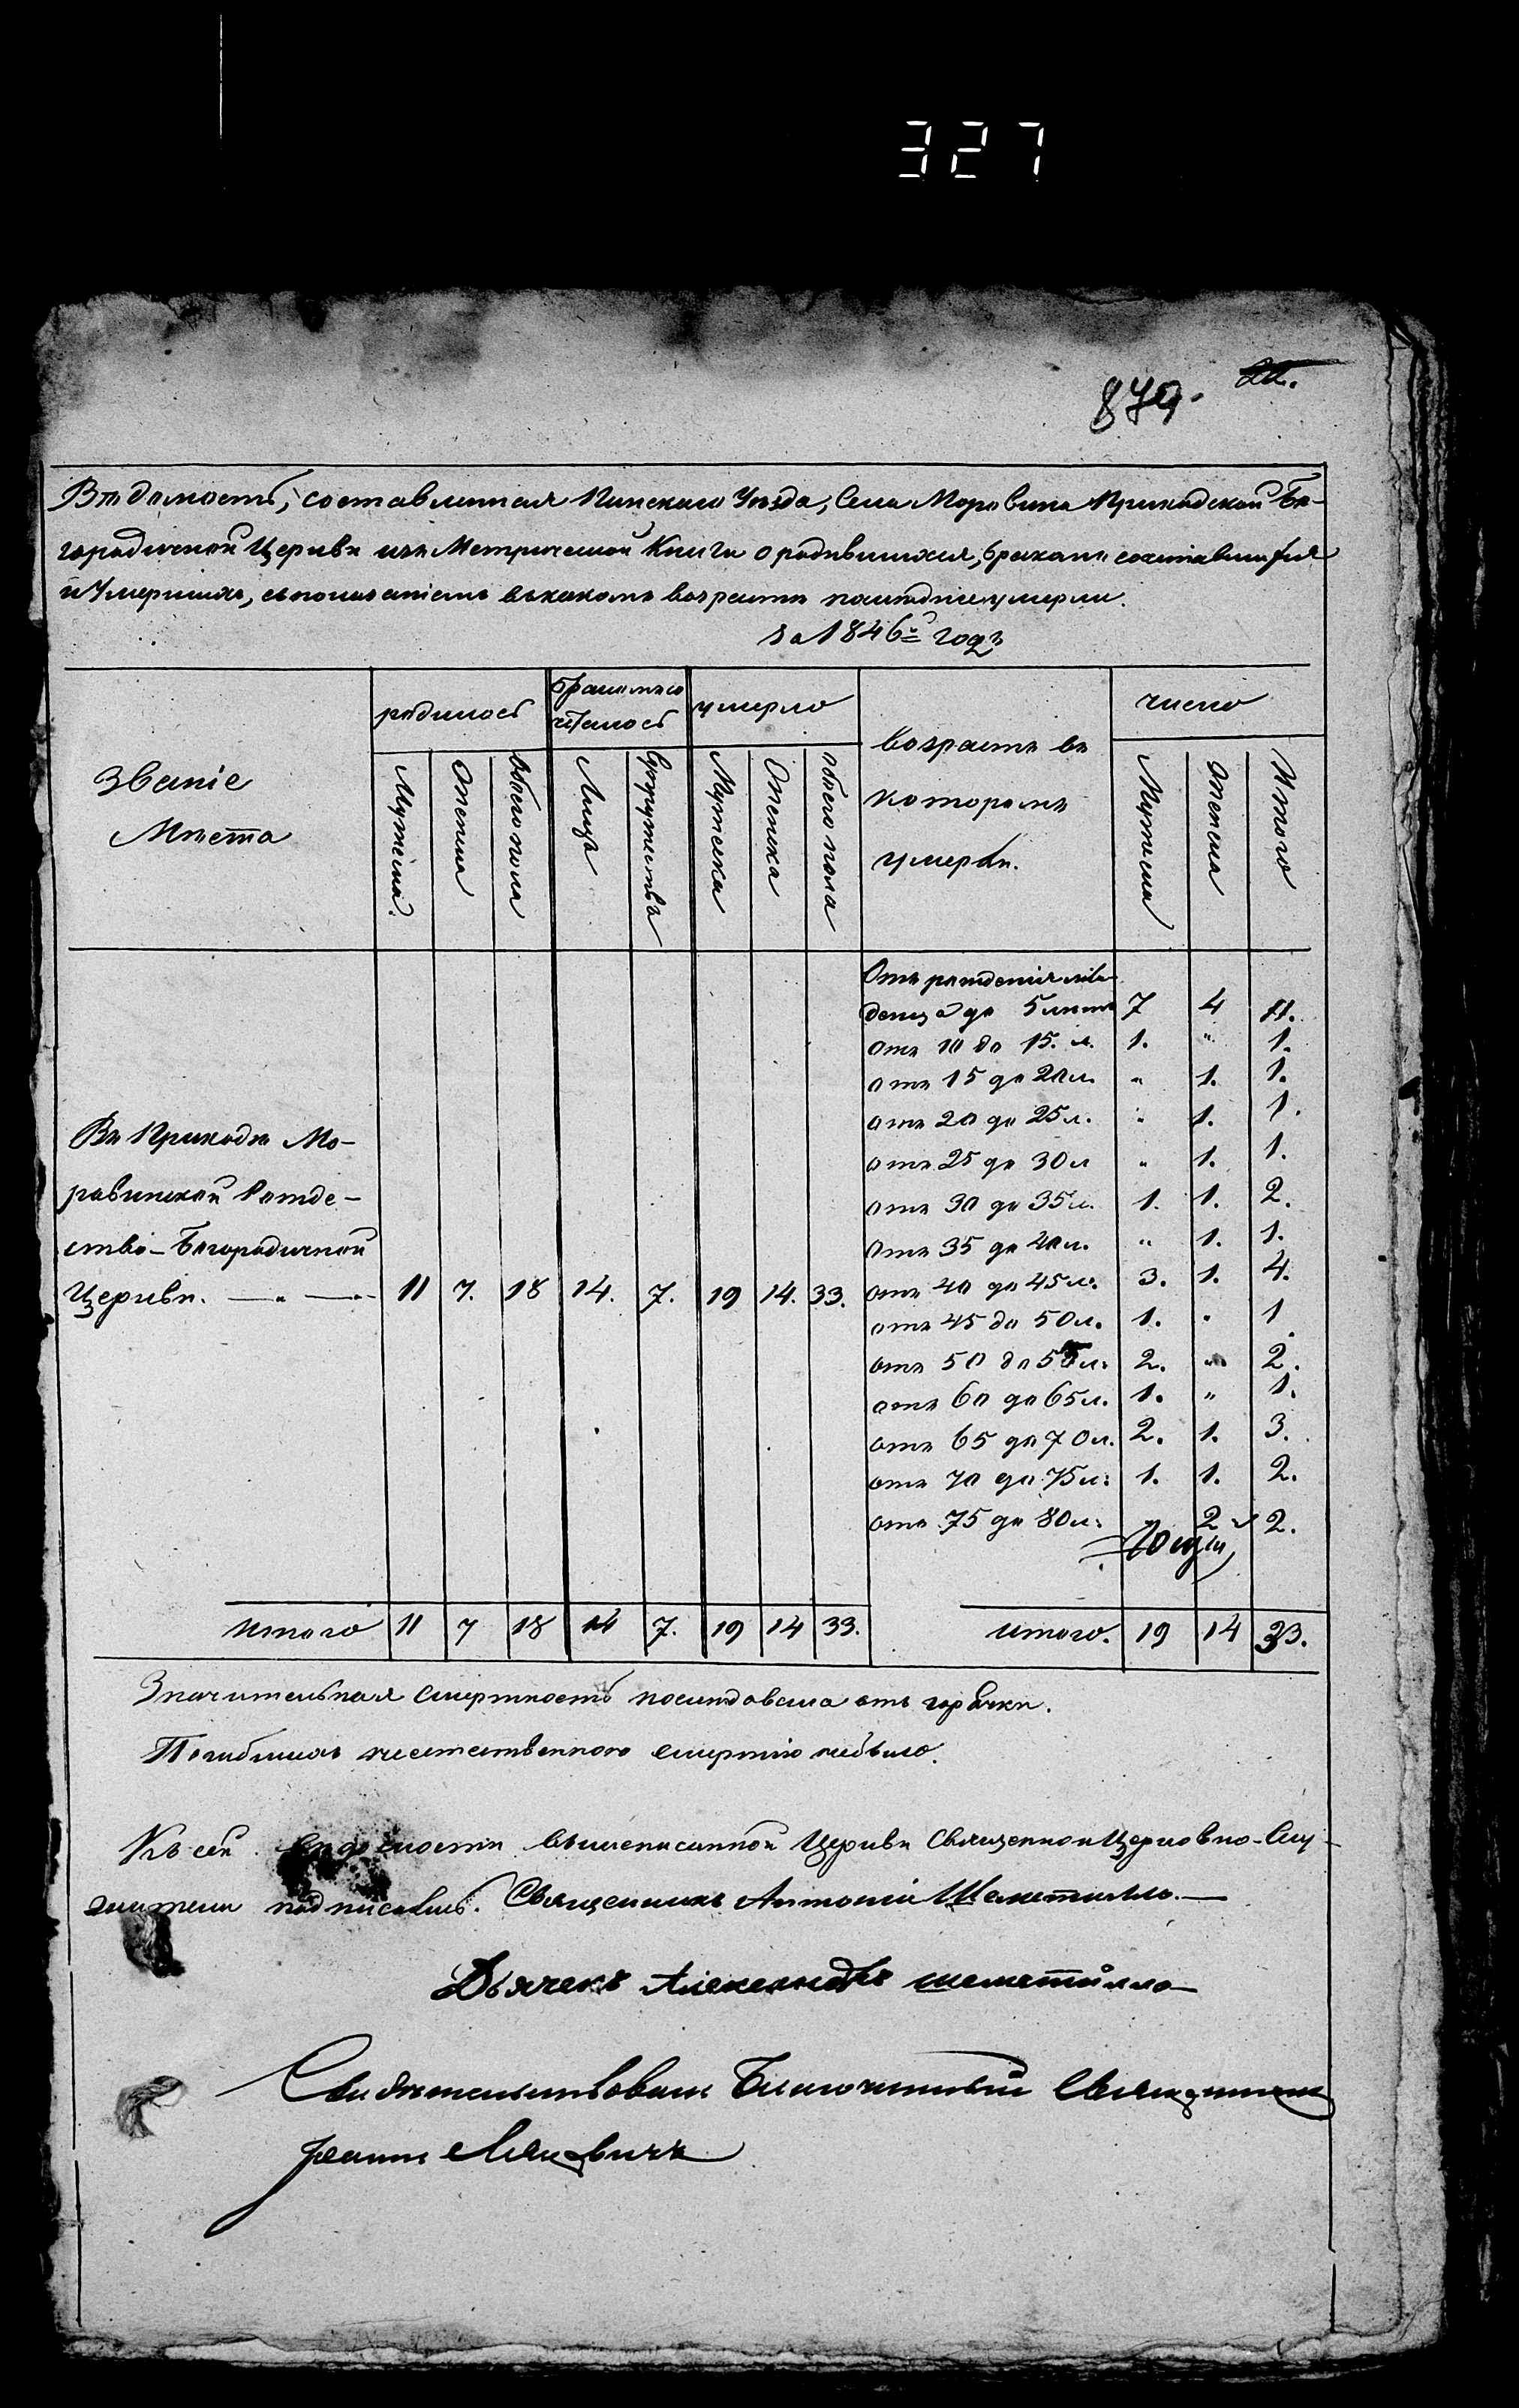 327
879.
Вѣдомость, составленная Пинскаго Уѣзда, Села Моровина Приходской Бо-
городичной Церкви изъ Метрической Книги о родившихся, бракомъ сочетавшихся
и Умершихъ, съ показаніемъ въ какомъ возрастѣ послѣдніе умерли.
за 1846й годъ
Званіе Мѣста
родилось
бракомъ сочеталось
умерло
возрастъ въ которомъ умерли.
число
Мужеска.
Женска
обоего пола
Лицъ
Супружествъ
Мужеска
Женска
обоего пола
Мужеска
Женска
Итого
Отъ рожденія мла-
денца до 5 лѣтъ 7 4 11.
отъ 10 до 15. л. 1. " 1.
отъ 15 до 20 л. " 1. 1.
отъ 20 до 25 л. " 1. 1.
отъ 25 до 30 л " 1. 1.
отъ 30 до 35 л. 1. 1. 2.
отъ 35 до 40 л. " 1. 1.
отъ 40 до 45 л. 3. 1. 4.
отъ 45 до 50 л. 1. " 1.
отъ 50 до 55 л. 2. " 2.
отъ 60 до 65 л. 1. " 1.
отъ 65 до 70 л. 2. 1. 3.
отъ 70 до 75 л. 1. 1. 2.
отъ 75 до 80 л. " 2 2.
Въ Приходѣ Мо-
ровинской Рожде-
ство-Богородичной
Церкви. 11 7. 18 14. 7. 19 14. 33.
Итого 11 7 18 14 7. 19 14 33.
итого. 19 14 33.
Значительная смертность послѣдовала отъ горячки.
Погибшихъ неестественною смертію небыло.
Къ сей вѣдомости вышеписанной Церкви Священно и Церковно-Слу-
жители подписались. Священникъ Антоній Шеметилло.
Дьячекъ Александръ шеметилло
Свидѣтельствовалъ Благочинный Священникъ
Іоаннъ